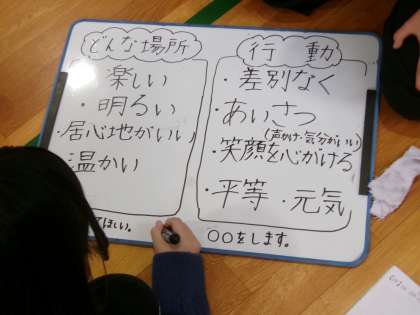 どんな場所
楽しい
・明るい
・居心地がいい
・温かい
てほしい。
行動
・差別なく
・あいさつ
(声かけ・気分がいい)
・笑顔を心がける
・平等・元気
○○をします。